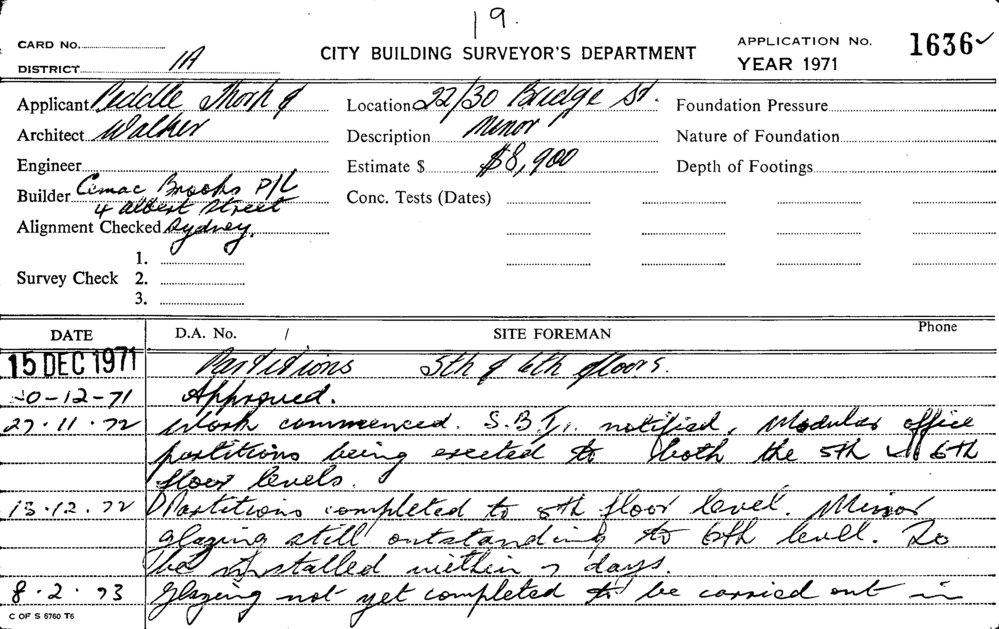 19.
CARD No. CITY BUILDING SURVEYOR'S DEPARTMENT APPLICATION No. 1636✓
DISTRICT 1A YEAR 1971
Applicant Peddle Thorp & Location 22/30 Bridge St. Foundation Pressure
Architect Walker Description Minor Nature of Foundation
Engineer Estimate $ $8,900 Depth of Footings
Builder Cemac Brooks P/L Conc. Tests (Dates)
4 Albert Street
Alignment Checked Sydney.
1.
Survey Check 2.
3.
DATE D.A. No. / SITE FOREMAN Phone
15 DEC 1971 Partitions 5th & 6th floors.
20-12-71 Approved.
27.11.72 Work commenced. S.B.I. notified. Modular office
partitions being erected to both the 5th & 6th
floor levels.
13.12.72 Partitions completed to 5th floor level. Minor
glazing still outstanding to 6th level. To
be installed within 7 days.
8.2.73 Glazing not yet completed to be carried out in
C OF S 6760 T6